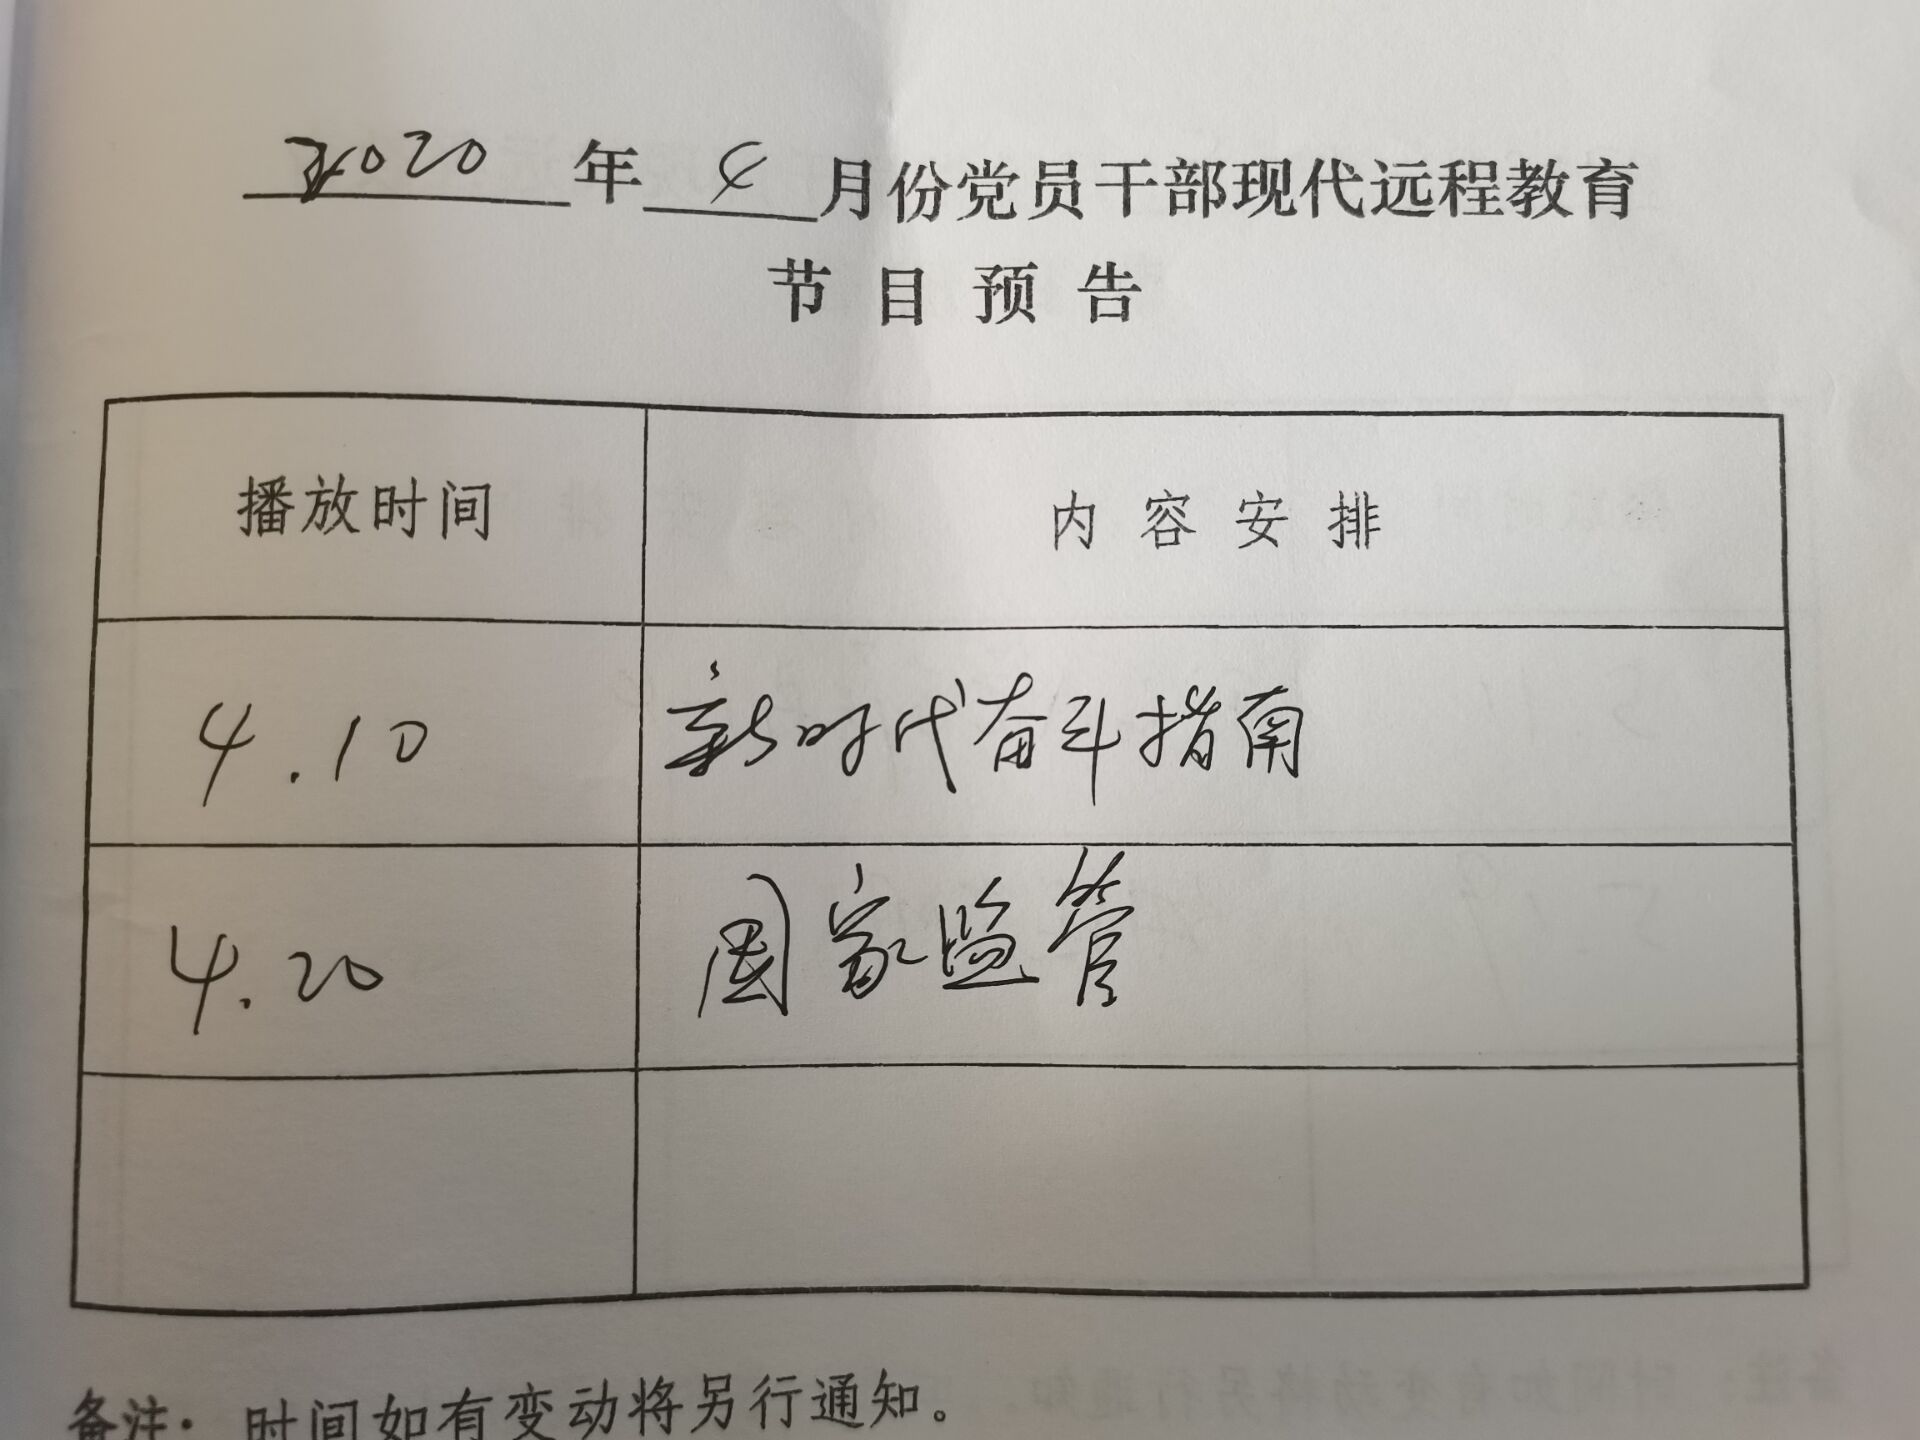 2020年4月份党员干部现代远程教育
节目预告
播放时间 内容安排
4.10 新时代奋斗指南
4.20 国家监管
备注：时间如有变动将另行通知。